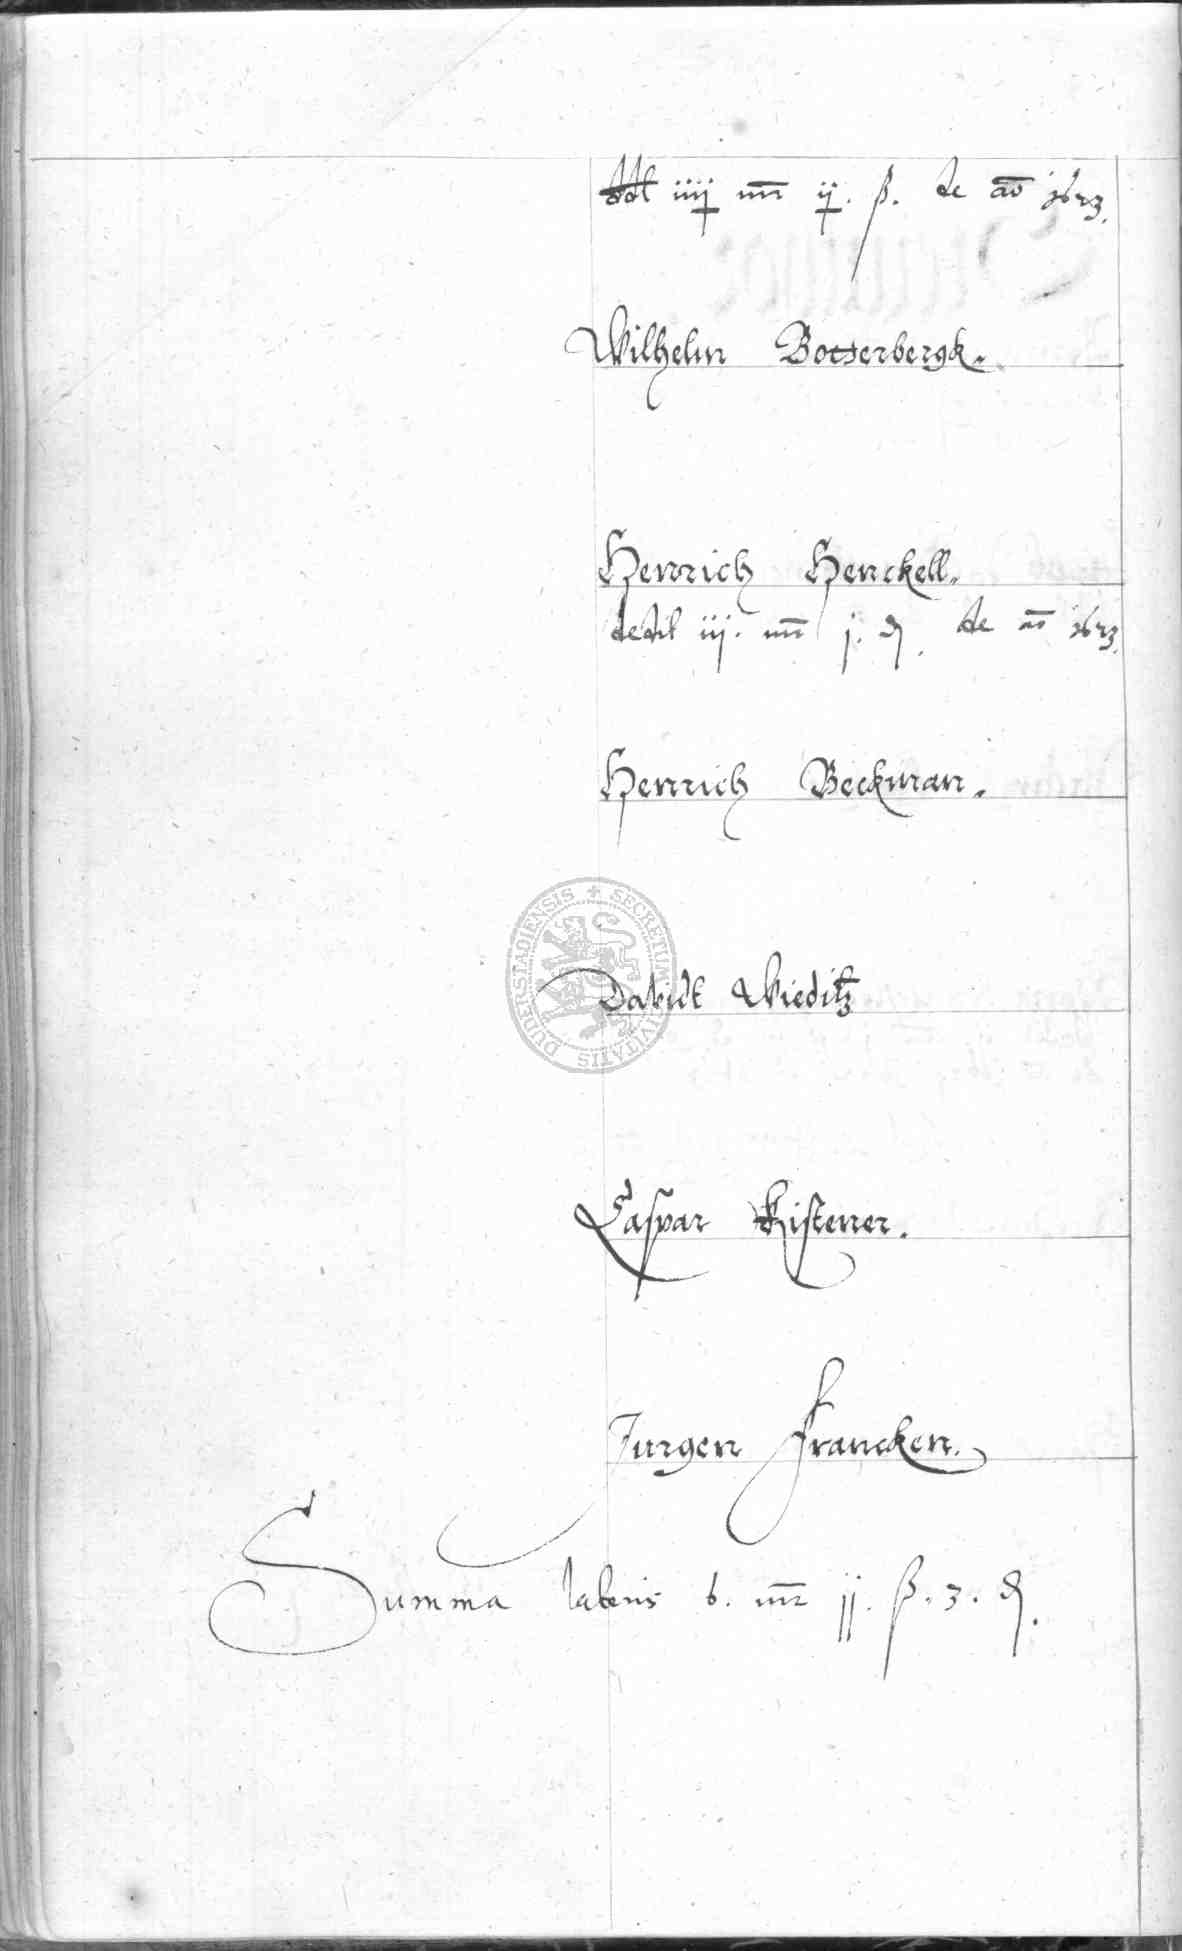 ddt iiij mr ij. ß. de ao 1623.
Wilhelm Botterbergk.
Henrich Henckell.
dedit iij. mr j. ₰. de ao 1623.
Henrich Beckman.
DUDERSTADIENSIS + SECRETUM CIVITATIS
Davidt Wieditz
Caspar Kistener.
Jurgen Francken.
Summa lateris 6. mr jj. ß. 3. ₰.